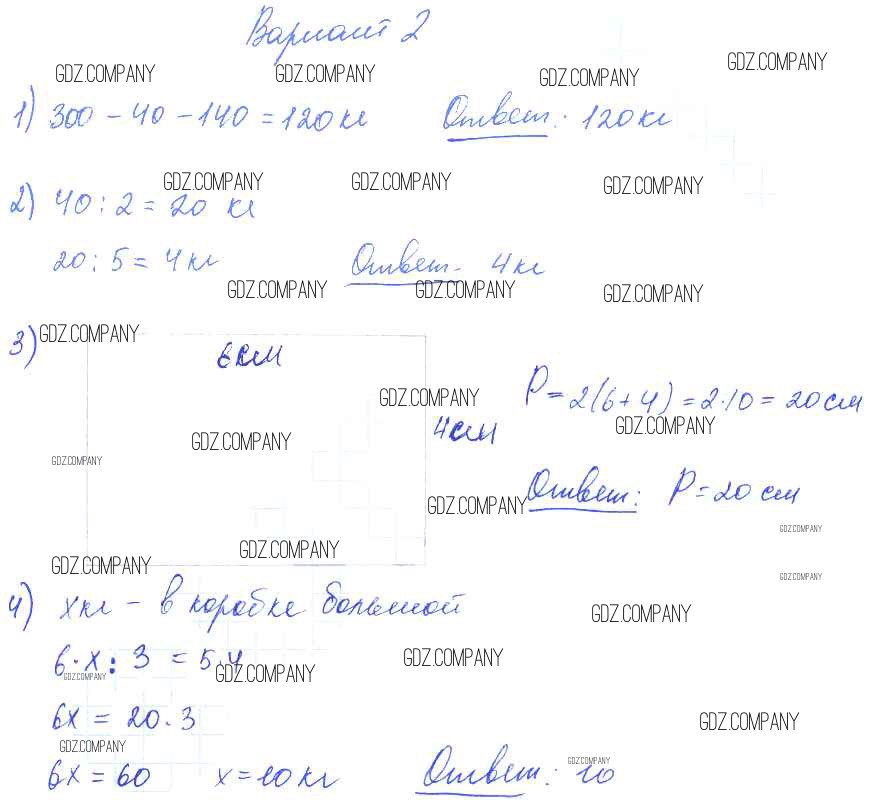 Вариант 2
GDZ.COMPANY GDZ.COMPANY GDZ.COMPANY GDZ.COMPANY
1) 300 - 40 - 140 = 120 кг Ответ: 120 кг
GDZ.COMPANY GDZ.COMPANY GDZ.COMPANY
2) 40 : 2 = 20 кг
20 : 5 = 4 кг Ответ - 4 кг
GDZ.COMPANY GDZ.COMPANY GDZ.COMPANY
3) GDZ.COMPANY
6 см
GDZ.COMPANY P = 2(6 + 4) = 2·10 = 20 см
GDZ.COMPANY 4 см GDZ.COMPANY
GDZ.COMPANY
GDZ.COMPANY Ответ: P = 20 см
GDZ.COMPANY
GDZ.COMPANY GDZ.COMPANY GDZ.COMPANY
4) x кг - в коробке большой GDZ.COMPANY
6·x : 3 = 5·4 GDZ.COMPANY
GDZ.COMPANY GDZ.COMPANY
6x = 20·3 GDZ.COMPANY
GDZ.COMPANY GDZ.COMPANY
6x = 60 x = 10 кг Ответ: 10